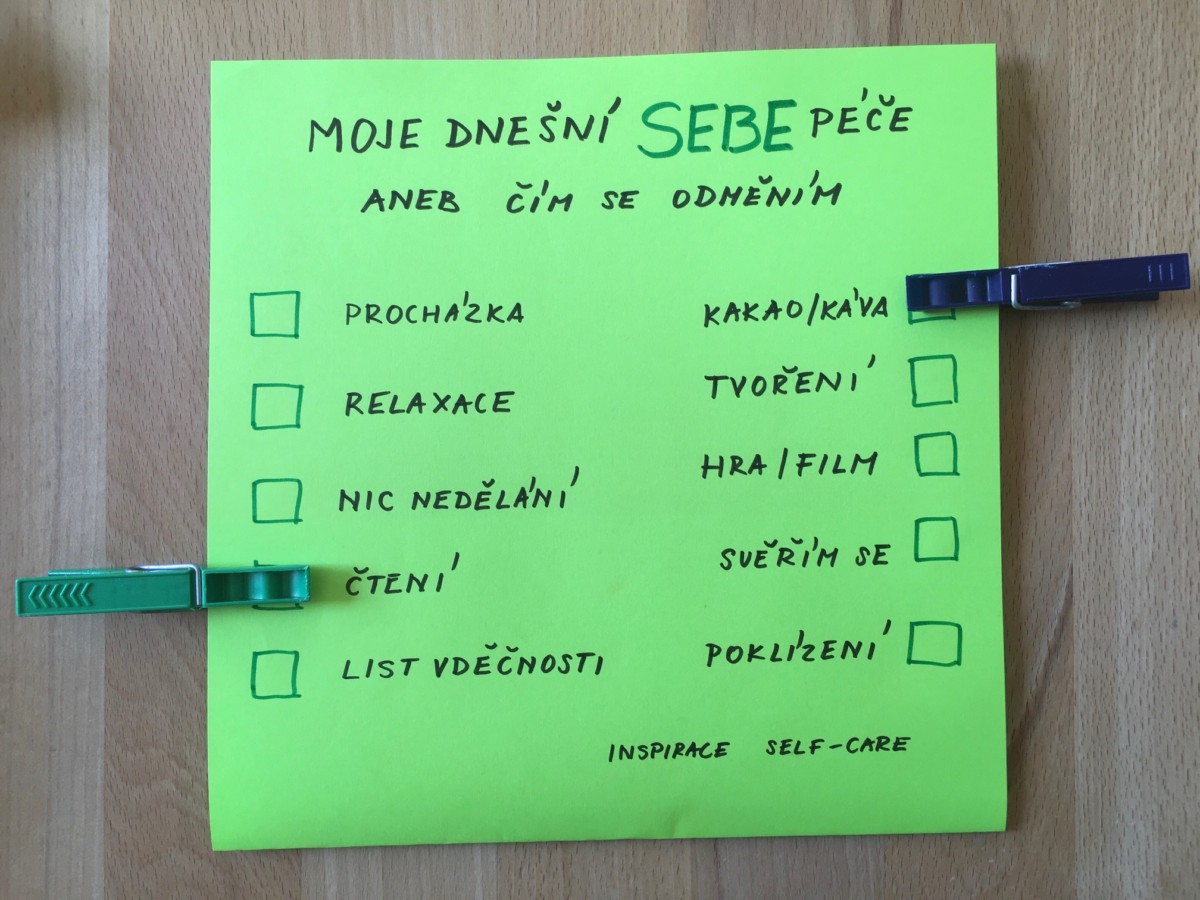 MOJE DNEŠNÍ SEBE PÉČE
ANEB ČÍM SE ODMĚNÍM
PROCHÁZKA
RELAXACE
NIC NEDĚLÁNÍ
ČTENÍ
LIST VDĚČNOSTI
KAKAO/KÁVA
TVOŘENÍ
HRA/FILM
SVĚŘÍM SE
POKLÍZENÍ
INSPIRACE SELF-CARE